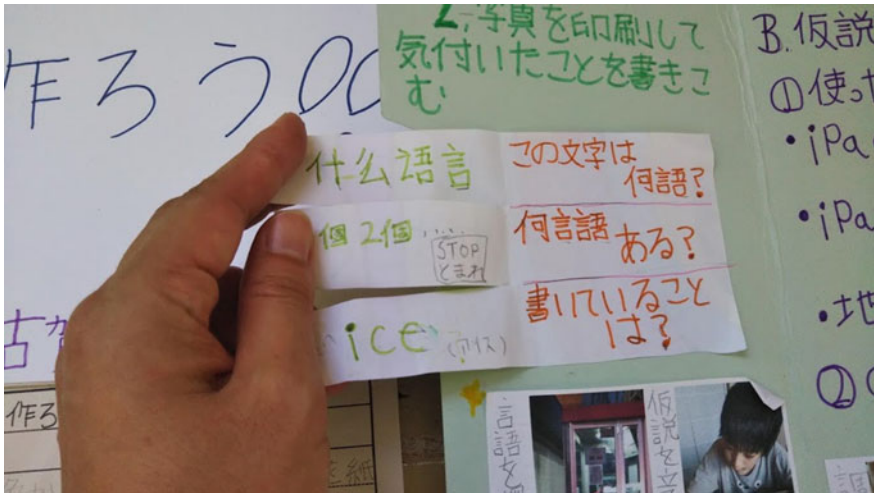 作ろう
2.写真を印刷して
気付いたことを書きこ
む
B.仮説
①使っ
・iPa
・iPa
・地
②
什么语言
この文字は
何語?
個 2個……
STOP
とまれ
何言語
ある?
ice (アイス)
書いていること
は?
作ろ
言語を
仮説を立